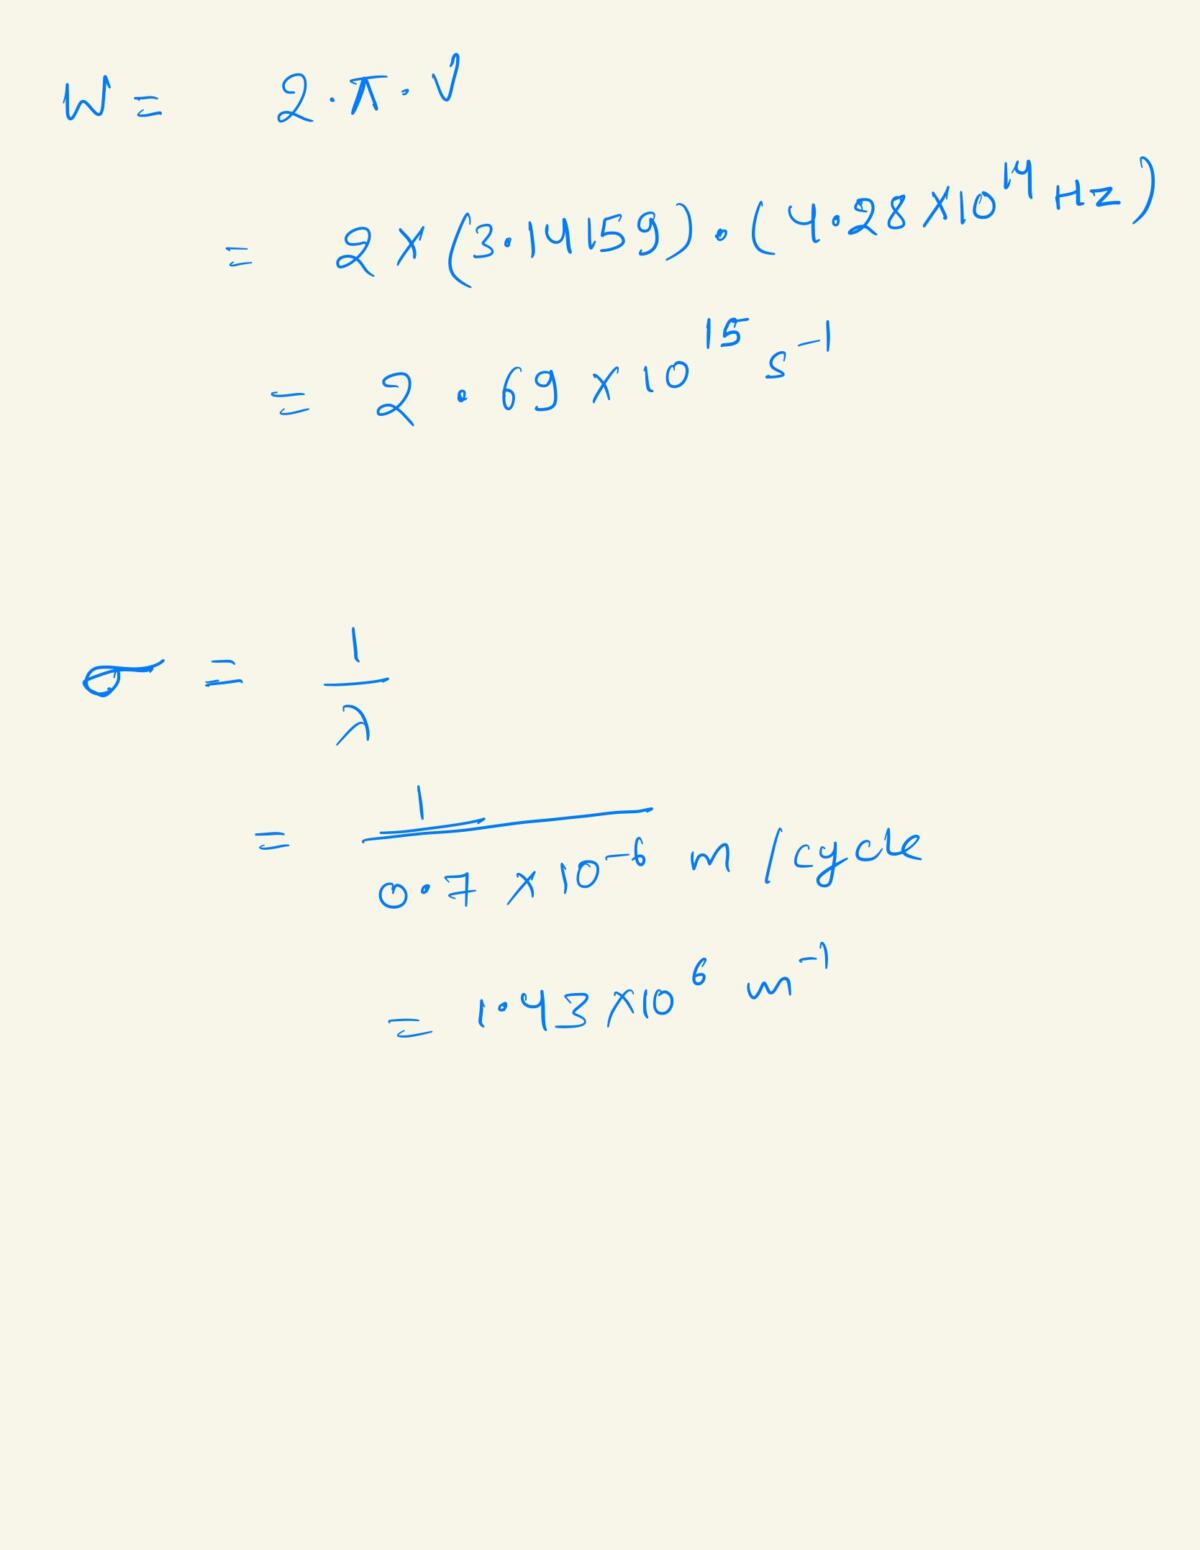 W = 2·π·√
= 2 × (3.14159)·(4.28 × 10^14 Hz)
= 2.69 × 10^15 s^-1
σ = 1/λ
= 1 / 0.7 × 10^-6 m/cycle
= 1.43 × 10^6 m^-1